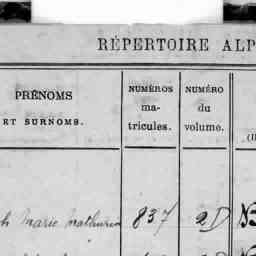 RÉPERTOIRE ALP
PRÉNOMS
ET SURNOMS.
NUMÉROS
ma-
tricules.
NUMÉRO
du
volume.
h Marie Mathurin 837 2D